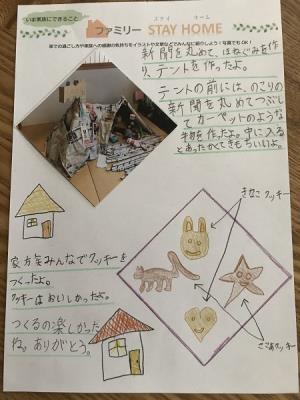 いま家族にできること
ステイ ホーム
ファミリー STAY HOME
家での過ごし方や家族への感謝の気持ちをイラストや文章などでみんなに紹介しよう！写真でもOK！
新聞を丸めて、ほねぐみを作
り、テントを作ったよ。
テントの前には、のこりの
新聞を丸めてつぶし
てカーペットのような
物を作ったよ。中に入る
とあったかくてきもちいいよ。
きなこクッキー
家方矢みんなでクッキーを
つくったよ。
クッキーはおいしかったよ。
つくるの楽しかった
ね。ありがとう。
ここあクッキー